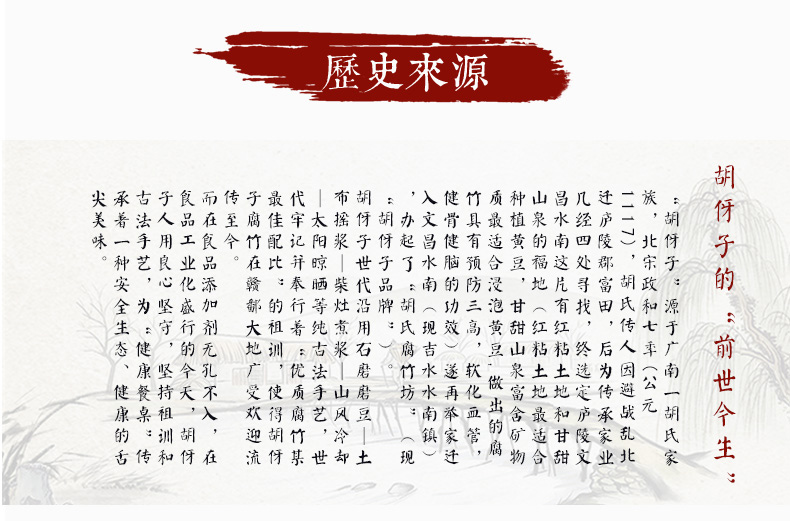 歷史來源
胡伢子的“前世今生”
“胡伢子”源于广南一胡氏家
族，北宋政和七年（公元
1117），胡氏传人因避战乱北
迁庐陵郡富田，后为传承家业
几经四处寻找，终选定庐陵文
昌水南这片有红粘土地和甘甜
山泉的福地（红粘土地最适合
种植黄豆，甘甜山泉富含矿物
质最适合浸泡黄豆，做出的腐
竹具有预防三高，软化血管，
健骨健脑的功效）遂再举家迁
入文昌水南（现吉水水南镇）
，办起了“胡氏腐竹坊”（现
“胡伢子品牌”）。
胡伢子世代沿用石磨磨豆—土
布摇浆—柴灶煮浆—山风冷却
—太阳晾晒等纯古法手艺，世
代牢记并奉行着“优质腐竹某
最佳配比”的祖训，使得胡伢
子腐竹在赣鄱大地广受欢迎流
传至今。
而在食品添加剂无孔不入，在
食品工业化盛行的今天，胡伢
子人用良心坚守，坚持祖训和
古法手艺，为“健康餐桌”传
承着一种安全生态、健康的舌
尖美味。